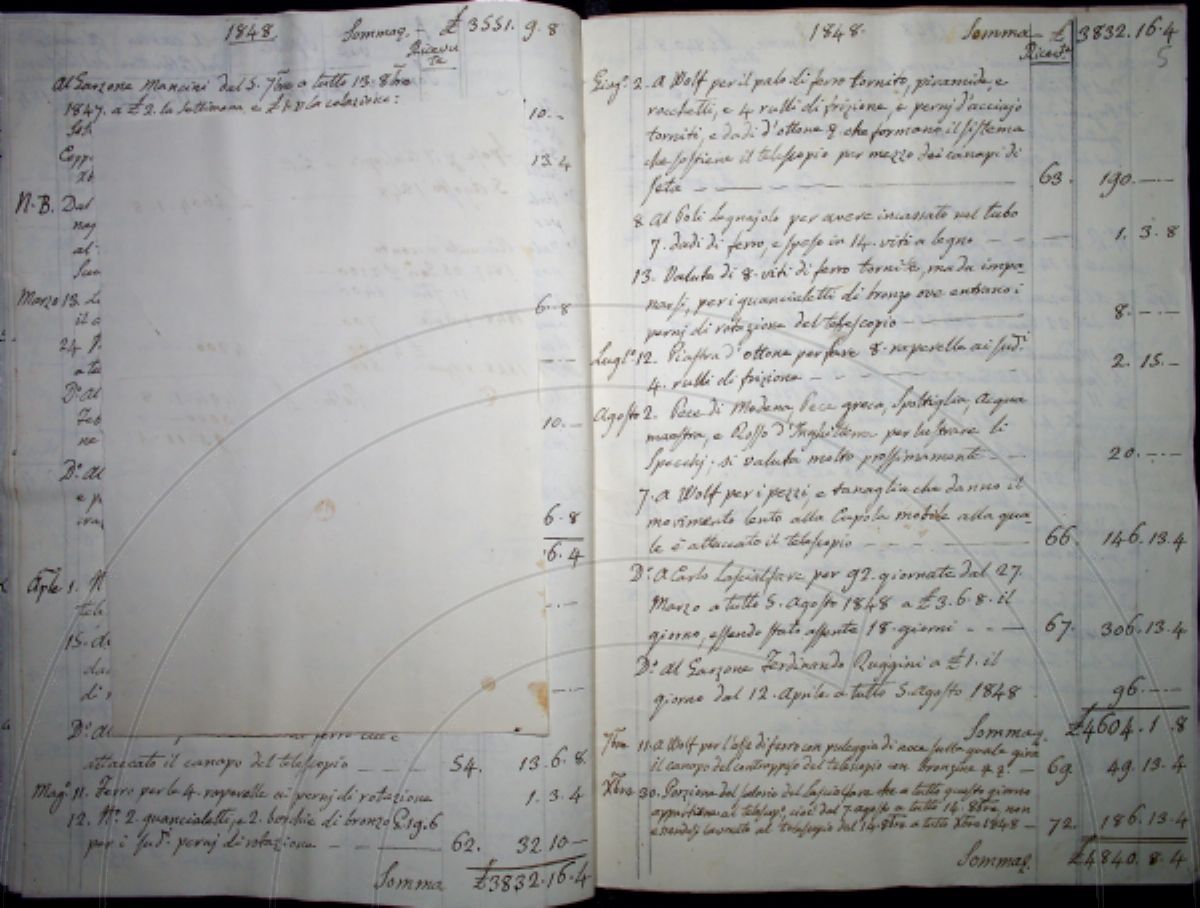 1848. Sommaq. - £ 3551. 9. 8
Ricevute
Al Garzone Mancini del 5. 7bre a tutto 13. 8bre
1847. a £ 2. la settimana e £ la colazione: 10. -
13. 4
N. B. Dal
al
Marzo 18. 6. 8
il
24
D.° Al
10. -
ne
D.° Al
e p
6. 8
6. 4
Aple 1.
15.
di
D.° Al
attaccato il canapo del telescopio 54. 13. 6. 8.
Mag.° 11. Ferro per le 4. raperelle ai pernj di rotazione 1. 3. 4
12. N.° 2. guancialetti, e 2. borchie di bronzo £. 19. 6
per i sud.i pernj di rotazione 62. 32 10 -
Somma £ 3832. 16. 4
1848. Somma - £ 3832. 16. 4
Ricevte 5
Giug.° 2. A Wolf per il palo di ferro tornito, piramide, e
rocchetti, e 4 rulli di frizione, e pernj d'acciajo
torniti, e dadi d'ottone & che formano il sistema
che sostiene il telescopio per mezzo dei canapi di
seta 63. 190. -
8. Al Poli Legnajolo per avere incassato nel tubo
7. dadi di ferro, e spese in 14. viti a legno 1. 3. 8
13. Valuta di 8. viti di ferro tornite, mada impa-
narsi, per i guancialetti di bronzo ove entrano i
pernj di rotazione del telescopio 8. -
Lugl.° 12. Piastra d'ottone per fare 8. raperelle ai sud.i
4. rulli di frizione 2. 15. -
Agosto 2. Pece di Modena, Pece greca, Spoltiglia, Acqua
maestra, e Rosso d'Inghilterra per lustrare li
Specchj; si valuta molto prossimamente 20. -
7. A Wolf per i pezzi, e tanaglia che danno il
movimento lento alla Cupola mobile alla qua-
le è attaccato il telescopio 66. 146. 13. 4
D.° A Carlo Lascialfare per 92. giornate dal 27.
Marzo a tutto 5. Agosto 1848 a £ 3. 6. 8. il
giorno, essendo stato assente 18. giorni 67. 306. 13. 4
D.° Al Garzone Ferdinando Ruggini a £ 1. il
giorno dal 12. Aprile a tutto 5. Agosto 1848 96. -
Sommaq. £ 4604. 1. 8
7bre 11. A Wolf per l'asse di ferro con puleggia di noce sulla quale gira
il canapo del contrappeso del telescopio con bronzine &. &. 69. 49. 13. 4
Xbre 30. Porzione del salario del Lascialfare che a tutto questo giorno
appartiene al telesc.°, cioè dal 7. agosto a tutto 14. 8bre, non
essendosi lavorato al telescopio dal 14. 8bre a tutto Xbre 1848 72. 186. 13. 4
Sommaq. £ 4840. 8. 4